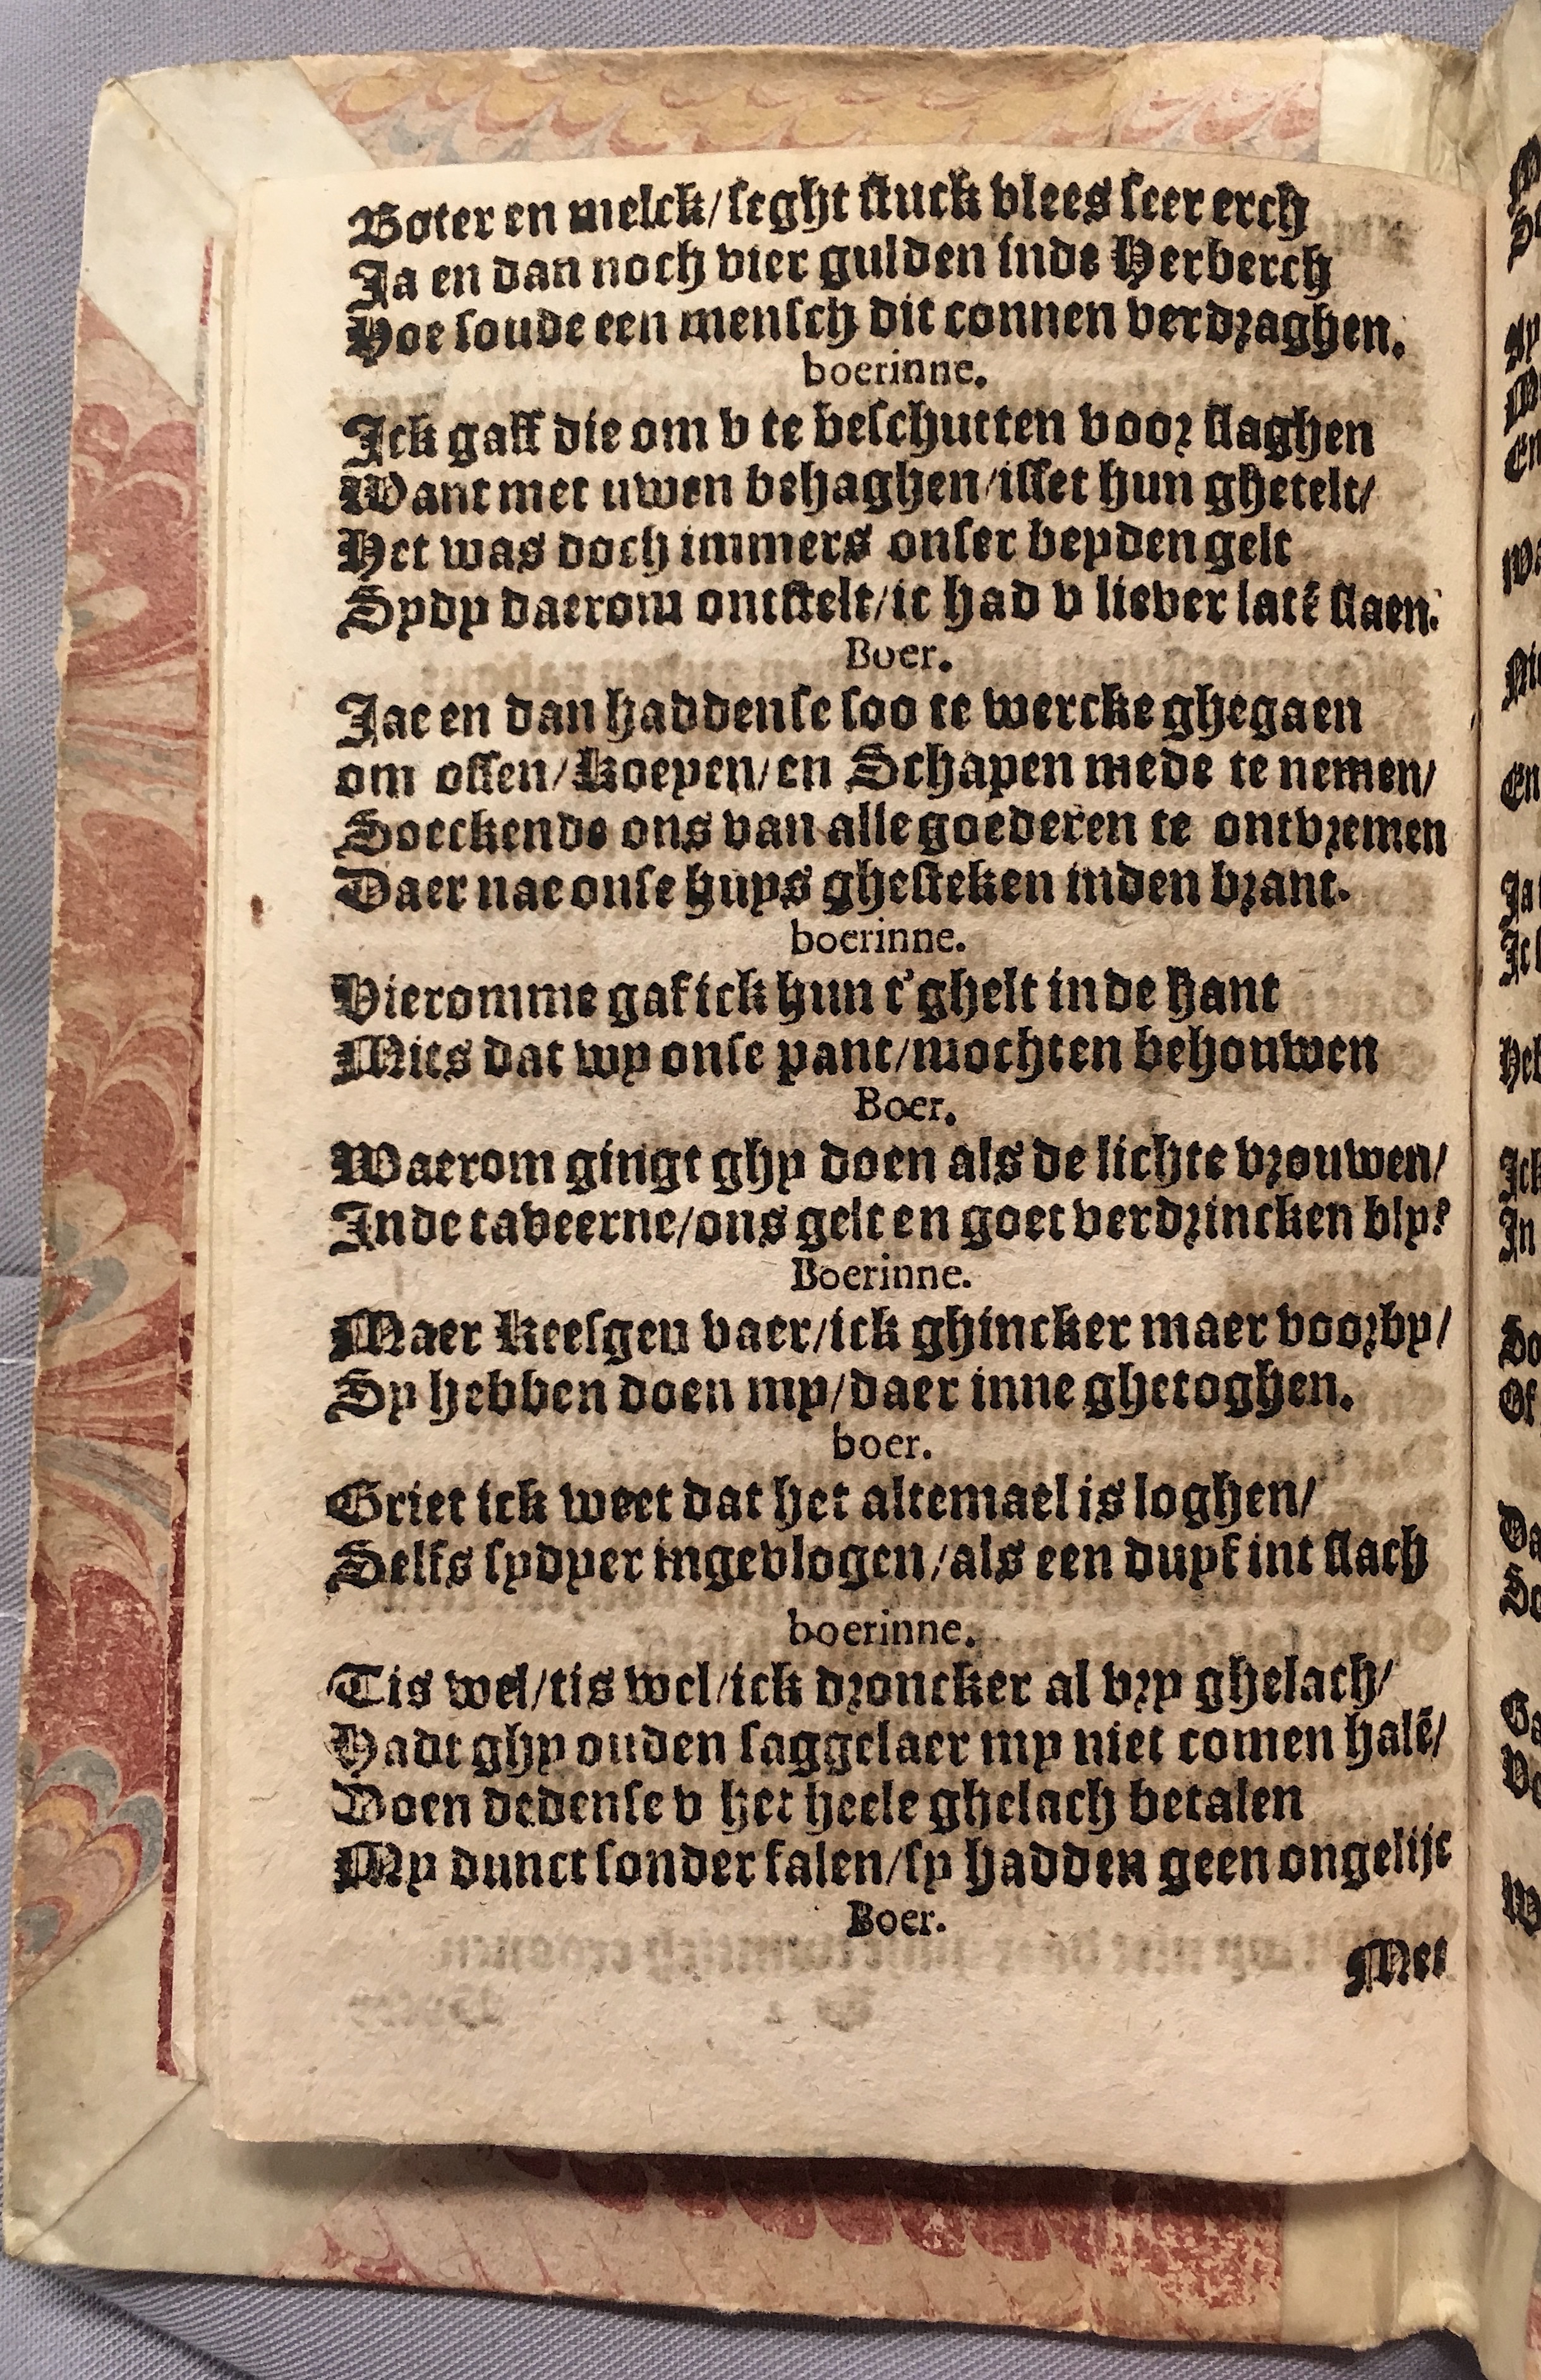 Boter en melck/seght stuck vlees seer erch
Ja en dan noch vier gulden inde Herberch
Hoe soude een mensch dit connen verdraghen.
boerinne.
Ick gaff die om v te beschutten voor slaghen
Want met uwen behaghen/isset hun ghetelt/
Het was doch immers onser beyden gelt
Sydy daerom ontstelt/ic had v liever latē slaen.
Boer.
Jae en dan haddense soo te wercke ghegaen
om ossen/koeyen/en Schapen mede te nemen/
Soeckende ons van alle goederen te ontvremen
Daer nae onse huys ghesteken inden brant.
boerinne.
Hieromme gaf ick hun t'ghelt in de hant
Mits dat wy onse pant/mochten behouwen
Boer.
Waerom gingt ghy doen als de lichte vrouwen/
Inde taveerne/ons gelt en goet verdrincken bly?
Boerinne.
Maer Keesgen vaer/ick ghincker maer voorby/
Sy hebben doen my/daer inne ghetoghen.
boer.
Griet ick weet dat het altemael is loghen/
Selfs sydyer ingevlogen/als een duyf int slach
boerinne.
Tis wel/tis wel/ick droncker al vry ghelach/
Hadt ghy ouden saggelaer my niet comen halē/
Doen dedense v het heele ghelach betalen
My dunct sonder falen/sy hadden geen ongelijc
Boer.
Met